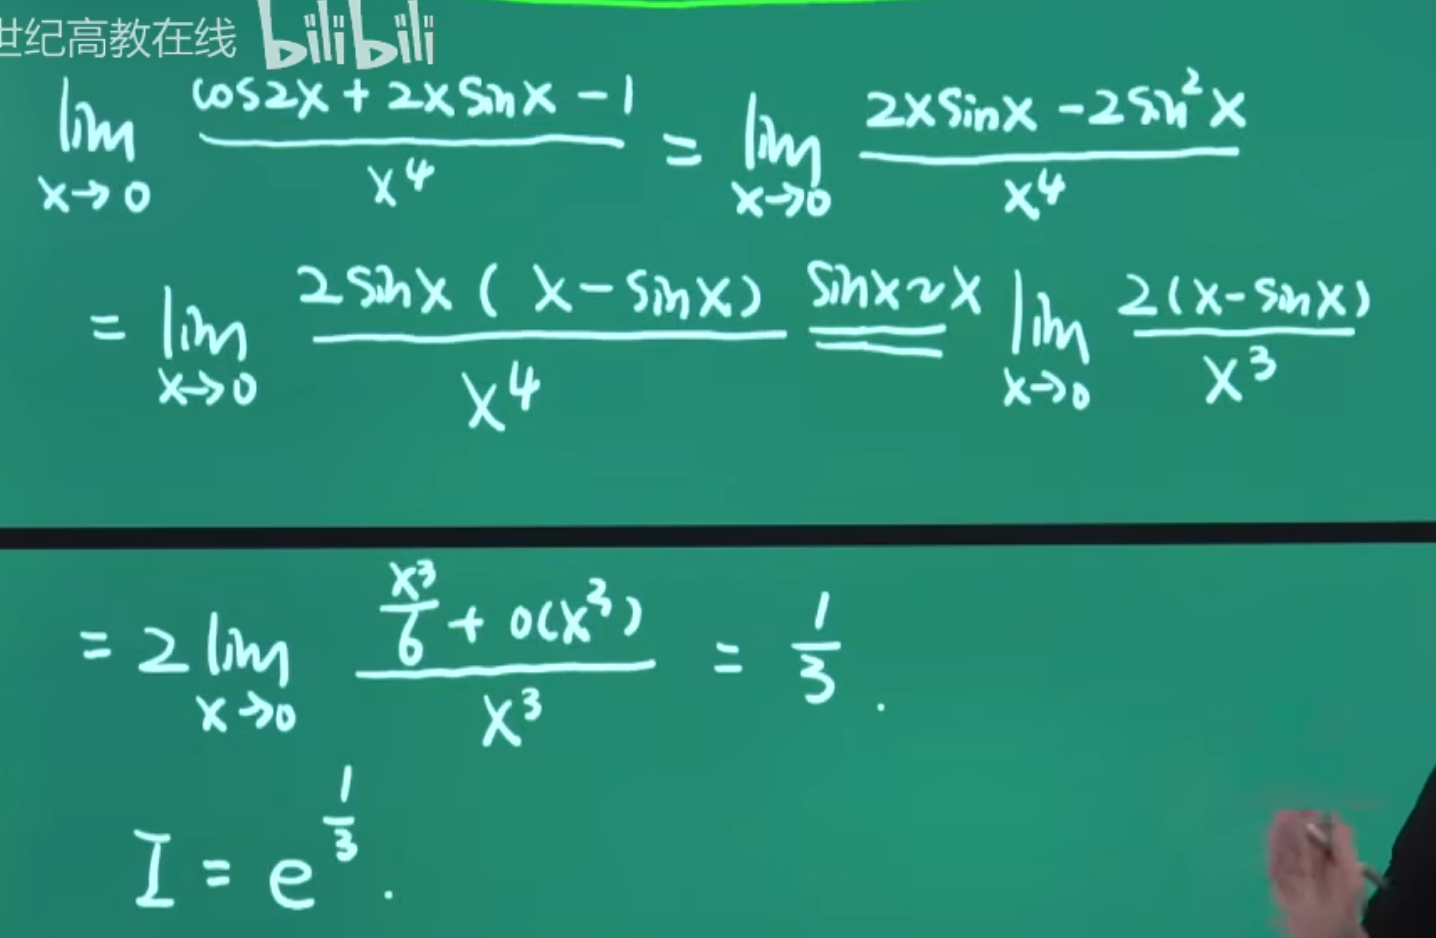 世纪高教在线 bilibili
lim x→0 (cos2x + 2x sinx − 1)/x⁴ = lim x→0 (2x sinx − 2sin²x)/x⁴
= lim x→0 2sinx(x − sinx)/x⁴ sinx~x == lim x→0 2(x − sinx)/x³
= 2 lim x→0 (x³/6 + o(x³))/x³ = 1/3 .
I = e^(1/3) .